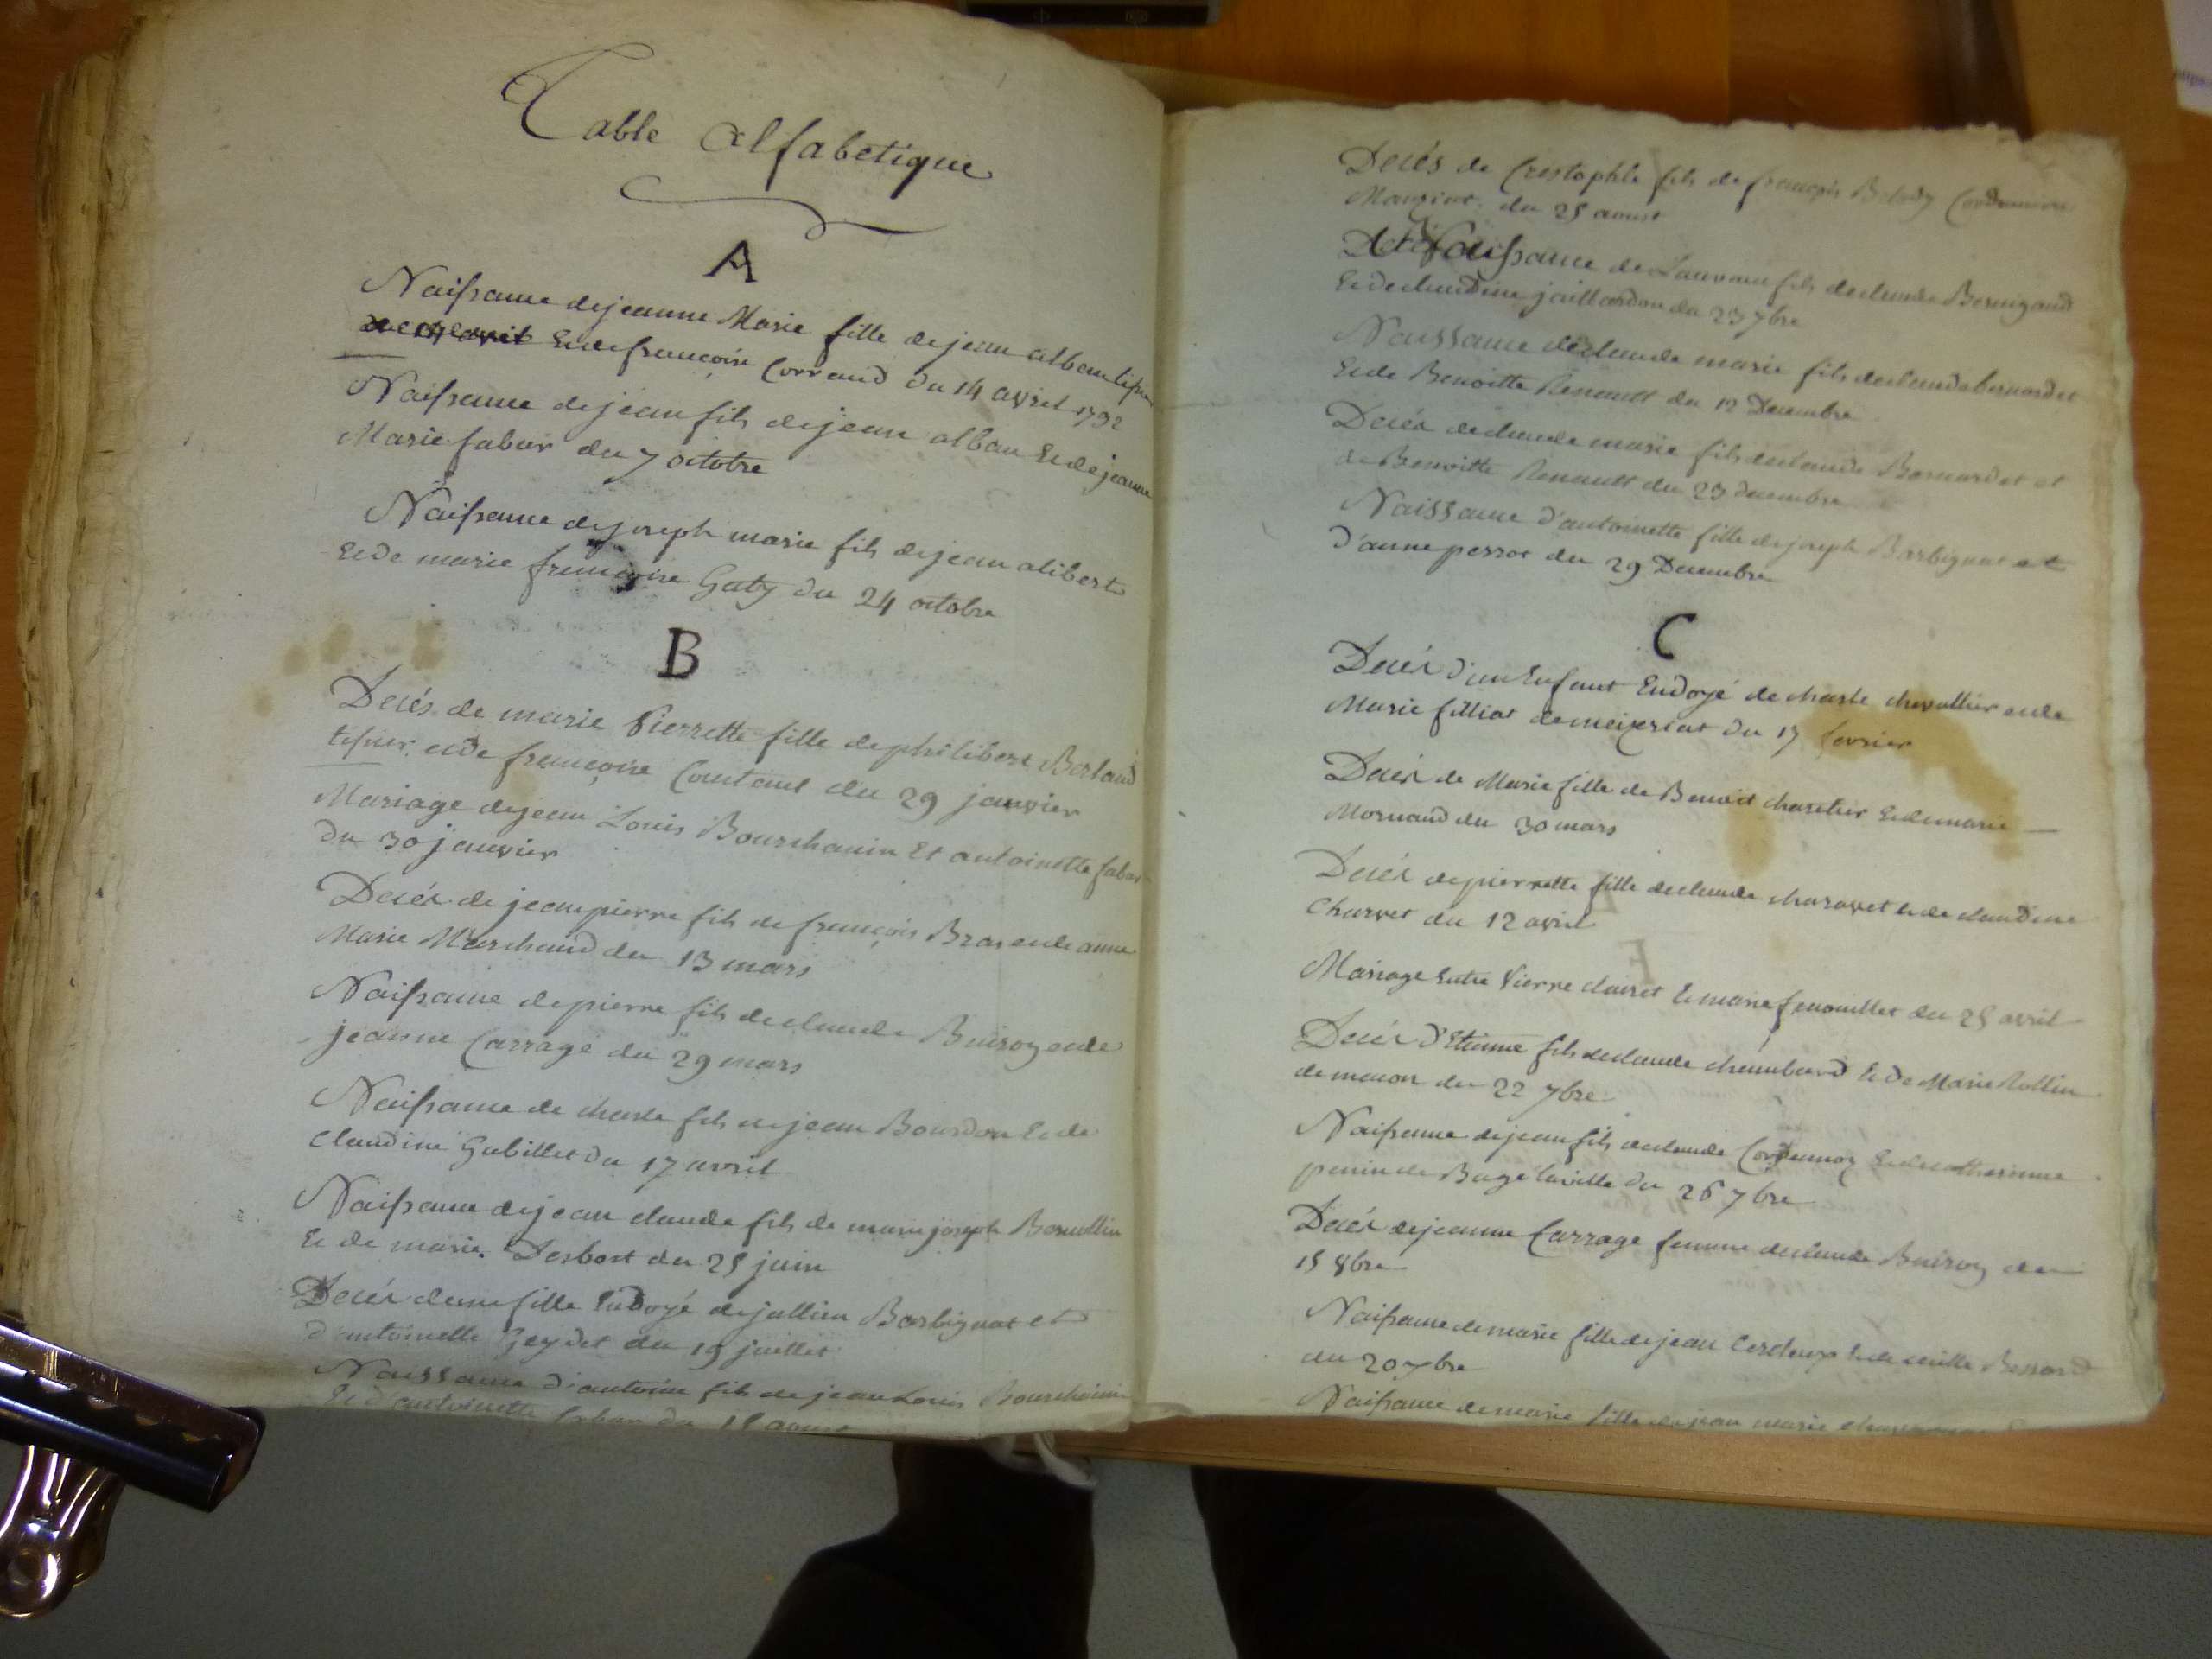 Table alfabetique
A
Naissance de jeanne Marie fille de jean alban tissier
Et de françoise Corraud du 14 avril 1792
Naissance de jean fils de jean alban Et de jeanne
Marie fabar du 7 octobre
Naissance de joseph marie fils de jean alibert
Et de marie françoise Gaty du 24 octobre
B
Decés de marie Pierrette fille de philibert Borland
tissier et de françoise Coutant du 29 janvier
Mariage de jean Louis Bourchanin Et antoinette fabar
du 30 janvier
Decés de jean pierre fils de françois Bras et de anne
Marie Marchand du 13 mars
Naissance de pierre fils de claude Buiroy et de
jeanne Carrage du 29 mars
Naissance de charle fils de jean Bourdon Et de
Claudine Gabillet du 17 avril
Naissance de jean claude fils de marie joseph
Et de marie Desbost du 25 juin
Decés dune fille Endoyé de jullien Barbignat et
d'antoinette du 19 juillet
Naissance d'antoine fils de jean Louis Bourchanin
Et d'antoinette fabar du 15 aoust
Decés de Crestophle fils de françois
du 25 aoust
Naissance de Laurans fils de claude Bernigaud
Et de claudine jaillardon du 23 7bre
Naissance de claude marie fils de claude bernardet
Et de Benoitte Renault du 12 Decembre
Decés de claude marie fils de claude Bernardet et
de Benoitte Renault du 23 decembre
Naissance d'antoinette fille de joseph Barbignat et
d'anne perrot du 29 Decembre
C
Decés d'un Enfant Endoyé de charle chevallier et de
Marie filliat de meizeriat du 17 fevrier
Decés de Marie fille de Benoit charetier Et de marie
Mornand du 30 mars
Decés de pierrette fille de claude charavet et de claudine
Charvet du 12 avril
Mariage Entre Pierre clairet Et marie fenouillet du 25 avril
Decés d'Etienne fils de claude chambard Et de Marie Rollin
de macon du 22 7bre
Naissance de jean fils de claude Et de catherinne
penin de Bagé laville du 26 7bre
Decés de jeanne Carrage femme de claude Buiroy du
15 8bre
Naissance de marie fille de jean Et de
du 20
Naissance de marie fille de jean marie